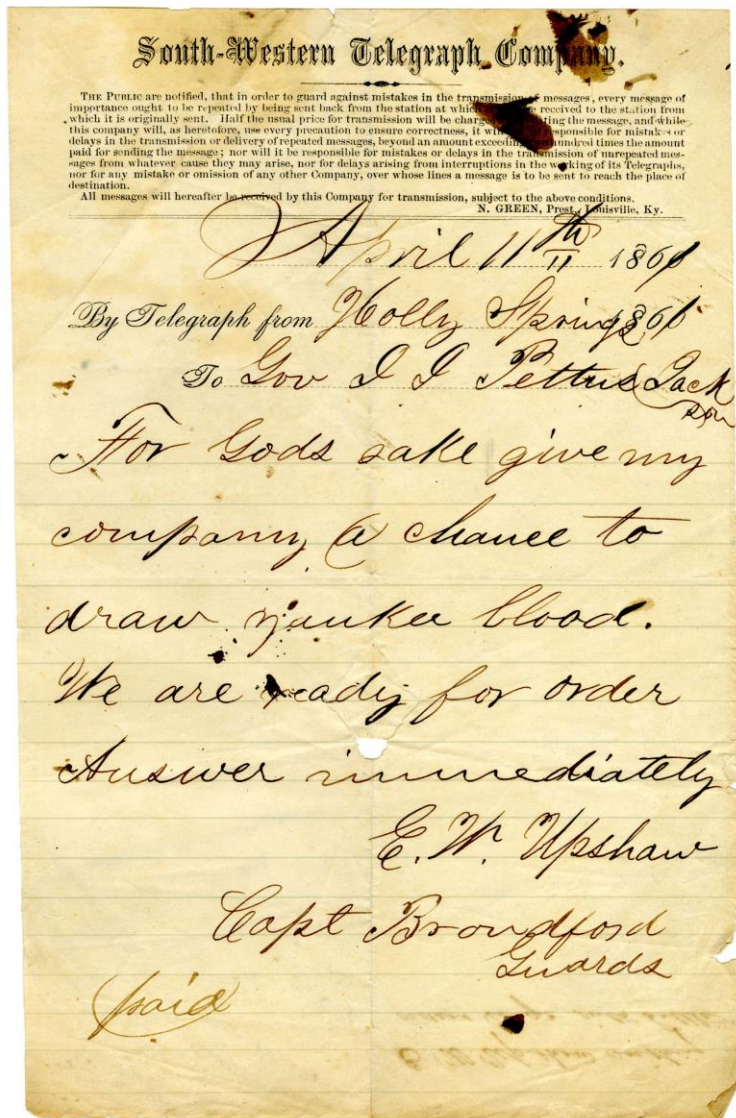 South-Western Telegraph Company.
THE PUBLIC are notified, that in order to guard against mistakes in the transmission of messages, every message of
importance ought to be repeated by being sent back from the station at which received to the station from
which it is originally sent. Half the usual price for transmission will be charged the message, and while
this company will, as heretofore, use every precaution to ensure correctness, it will responsible for mistakes or
delays in the transmission or delivery of repeated messages, beyond an amount exceeding hundred times the amount
paid for sending the message; nor will it be responsible for mistakes or delays in the transmission of unrepeated mes-
sages from whatever cause they may arise, nor for delays arising from interruptions in the working of its Telegraphs,
nor for any mistake or omission of any other Company, over whose lines a message is to be sent to reach the place of
destination.
All messages will hereafter be received by this Company for transmission, subject to the above conditions.
N. GREEN, Prest., Louisville, Ky.
April 11th 11 1861
By Telegraph from Holly Springs 1861
To Gov J J Pettus Jack
son
For Gods sake give my
company a chance to
draw yankee blood.
We are ready for order
Answer immediately
E. W. Upshaw
Capt
Guards
paid